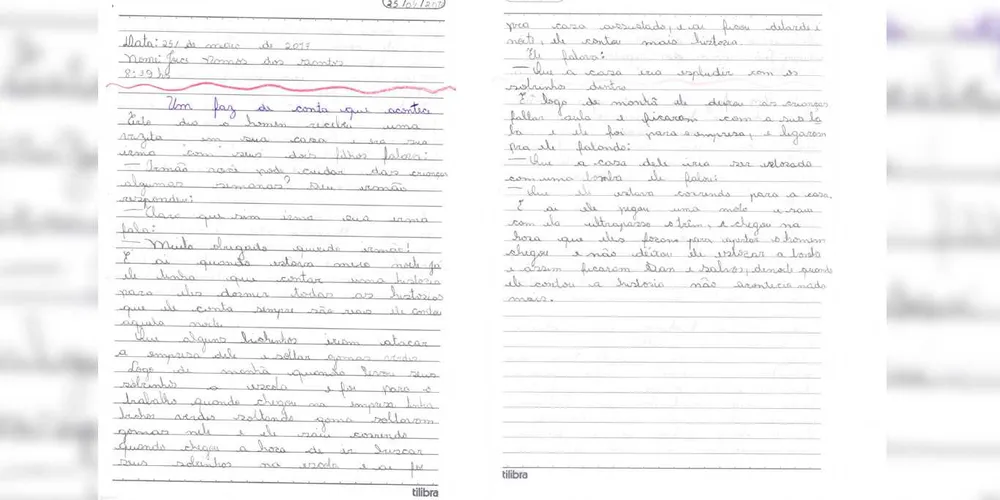 25/04/20
Data: 25/ de maio de 20
Nome: Ramos dos Santos
8:29
Um faz de conta que acontece
dia o homem recebeu uma
vizita em sua casa e na sua
irma com seus dois filhos falora:
— Irmão você pode cuidar das crianças
algumas semanas? Seu irmão
respondeu:
— Claro que sim irma sua irma
fala:
— Muito obrigado querido irmão!
E ai quando estava meio noite já
ele tinha que contar uma historia
para eles dormir todas as historias
que ele conta sempre são reais ele contou
aquela noite
Que alguns bichinhos iriam atacar
a empresa dele e soltar gomas verdes
Logo de manhã quando levou seus
sobrinhos a escola e foi para o
trabalho quando chegou na empresa tinha
bichos verdes soltando goma soltavam
gomas nele e ele saiu correndo
quando chegou a hora de ir buscar
seus sobrinhos na escola e ai foi
tilibra
pra casa assustado, e ai ficou de
noite, ele contou mais historia
Ele falora:
— Que a casa iria espludir com os
sobrinho dentro
E logo de manhã ele deixou as crianças
faltar aula e ficaram com a
e ele foi para a empresa, e ligaram
pra ele falando:
— Que a casa dele iria ser
com uma bomba ele falou:
— Que ele estava correndo para a casa.
E ai ele pegou uma moto e saiu
com ela ultrapasso o trem, e chegou na
hora que eles foram para o homem
chegou e não deixou ele a bomba
e assim ficaram e salvos, quando
ele contou a historia não acontecia nada
mais.
tilibra